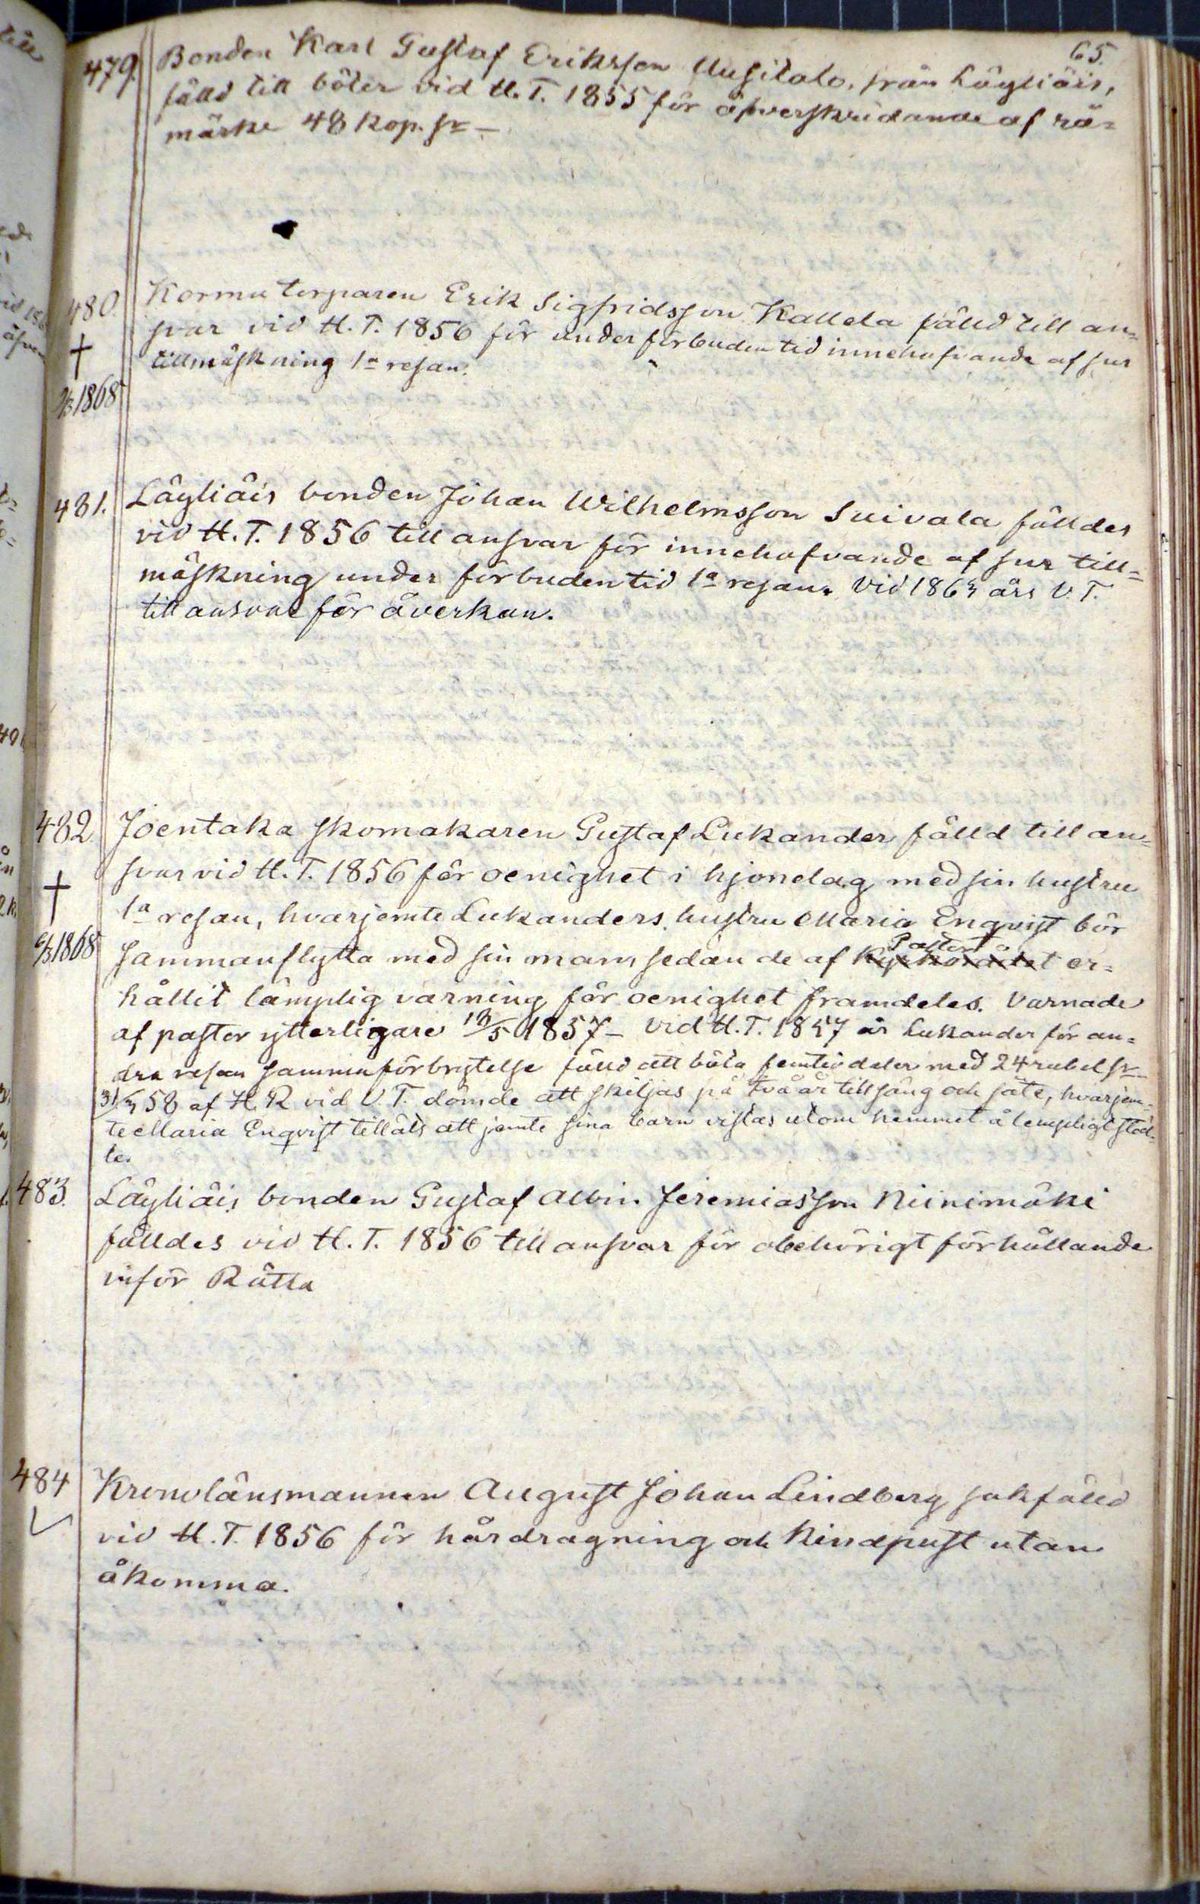 65.
479. Bonden Karl Gustaf Eriksson Uusitalo, från Lägliäis,
fälld till böter vid H.T. 1855 för öfverskridande af rå=
märke 48 kop. sr –
480. Kormu torparen Erik Sigfridsson Kallela fälld till an=
svar vid H.T. 1856 för under förbuden tid innehafvande af sur
† tillmäskning 1a resan.
1868
481. Lägliäis bonden Johan Wilhelmsson Suivala fälldes
vid H.T. 1856 till ansvar för innehafvande af sur till=
mäskning under förbuden tid 1a resan. Vid 1863 års V.T.
till ansvar för åverkan.
482 Joentaka skomakaren Gustaf Lukander fälld till an=
svar vid H.T. 1856 för oenighet i hjonelag med sin hustru
† 1a resan, hvarjemte Lukanders hustru Maria Enqvist bör
1868 sammanflytta med sin man, sedan de af Pastor er=
hållit lämplig varning för oenighet framdeles. Varnade
af pastor ytterligare 13/5 1857 – Vid H.T. 1857 är Lukander för an=
dra resan samma förbrytelse fälld att böta femtio daler med 24 rubel sr –
31/3 58 af H.R vid V.T. dömde att skiljas på två år till säng och säte, hvarjem=
te Maria Enqvist tillåts att jemte sina barn vistas utom hemmet å lempligt stäl=
le.
483. Lägliäis bonden Gustaf Albin Jeremiasson Niinimäki
fälldes vid H.T. 1856 till ansvar för obehörigt förhållande
inför Rätta
484 Kronolänsmannen August Johan Lindberg sakfälld
vid H.T. 1856 för hårdragning och Kindpust utan
åkomma.